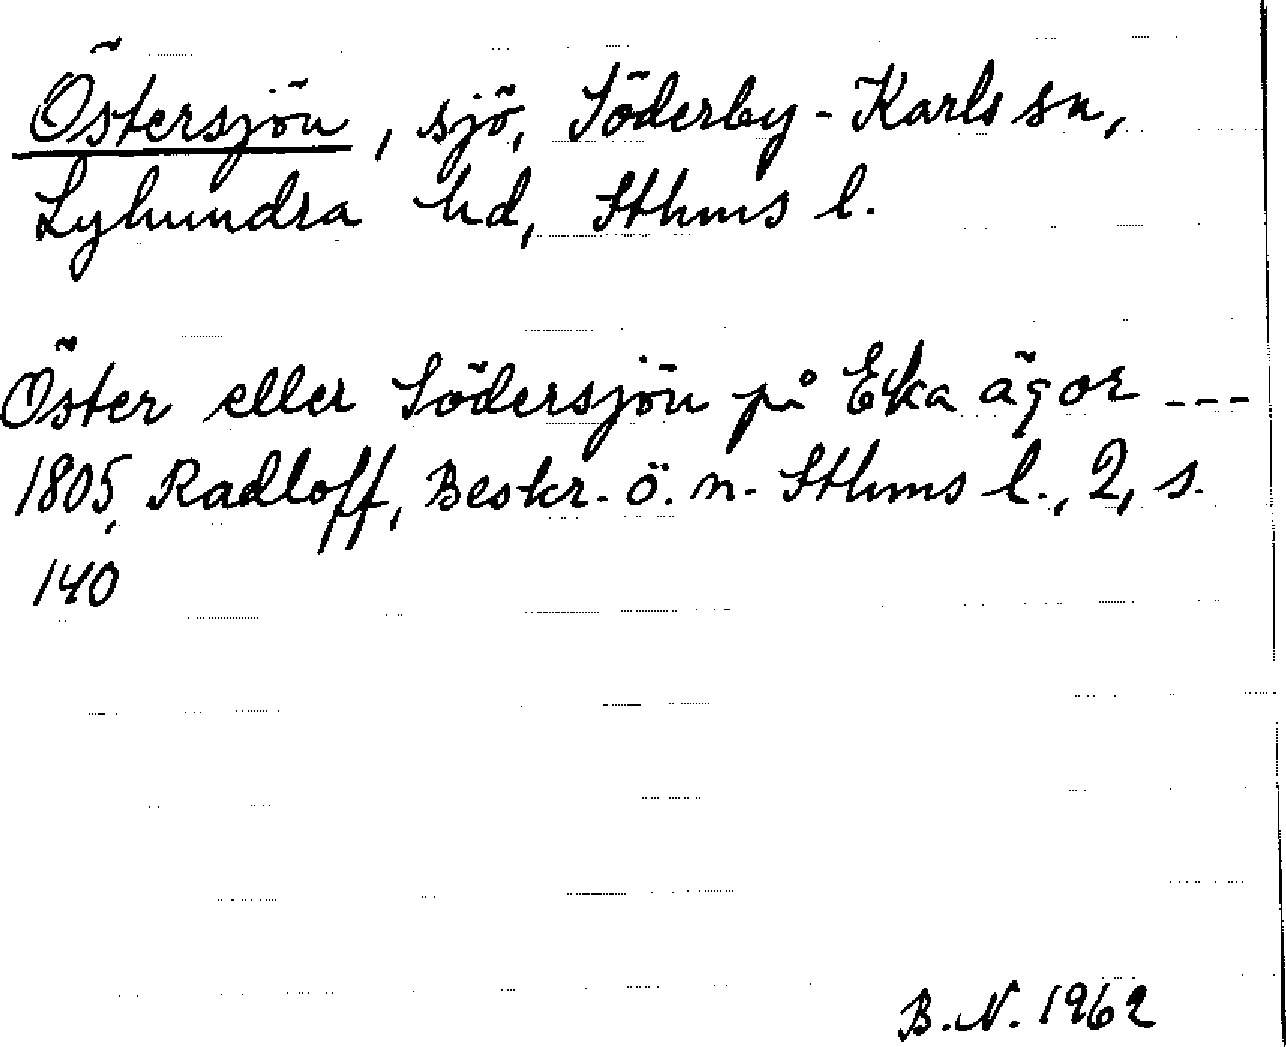 Östersjön, sjö, Söderby-Karls sn,
Lyhundra hd, Sthms l.
Öster eller Södersjön på Eka ägor ---
1805, Radloff, Beskr. ö. n. Sthms l., 2, s.
140
B.N. 1962